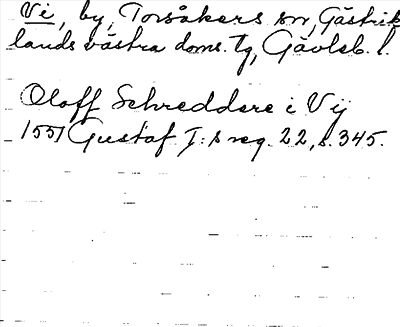 Vi, by, Torsåkers sn, Gästrik
lands västra doms. tg, Gävleb. l.
Oloff Schreddere i Vij
1551 Gustaf I:s reg. 22, s. 345.